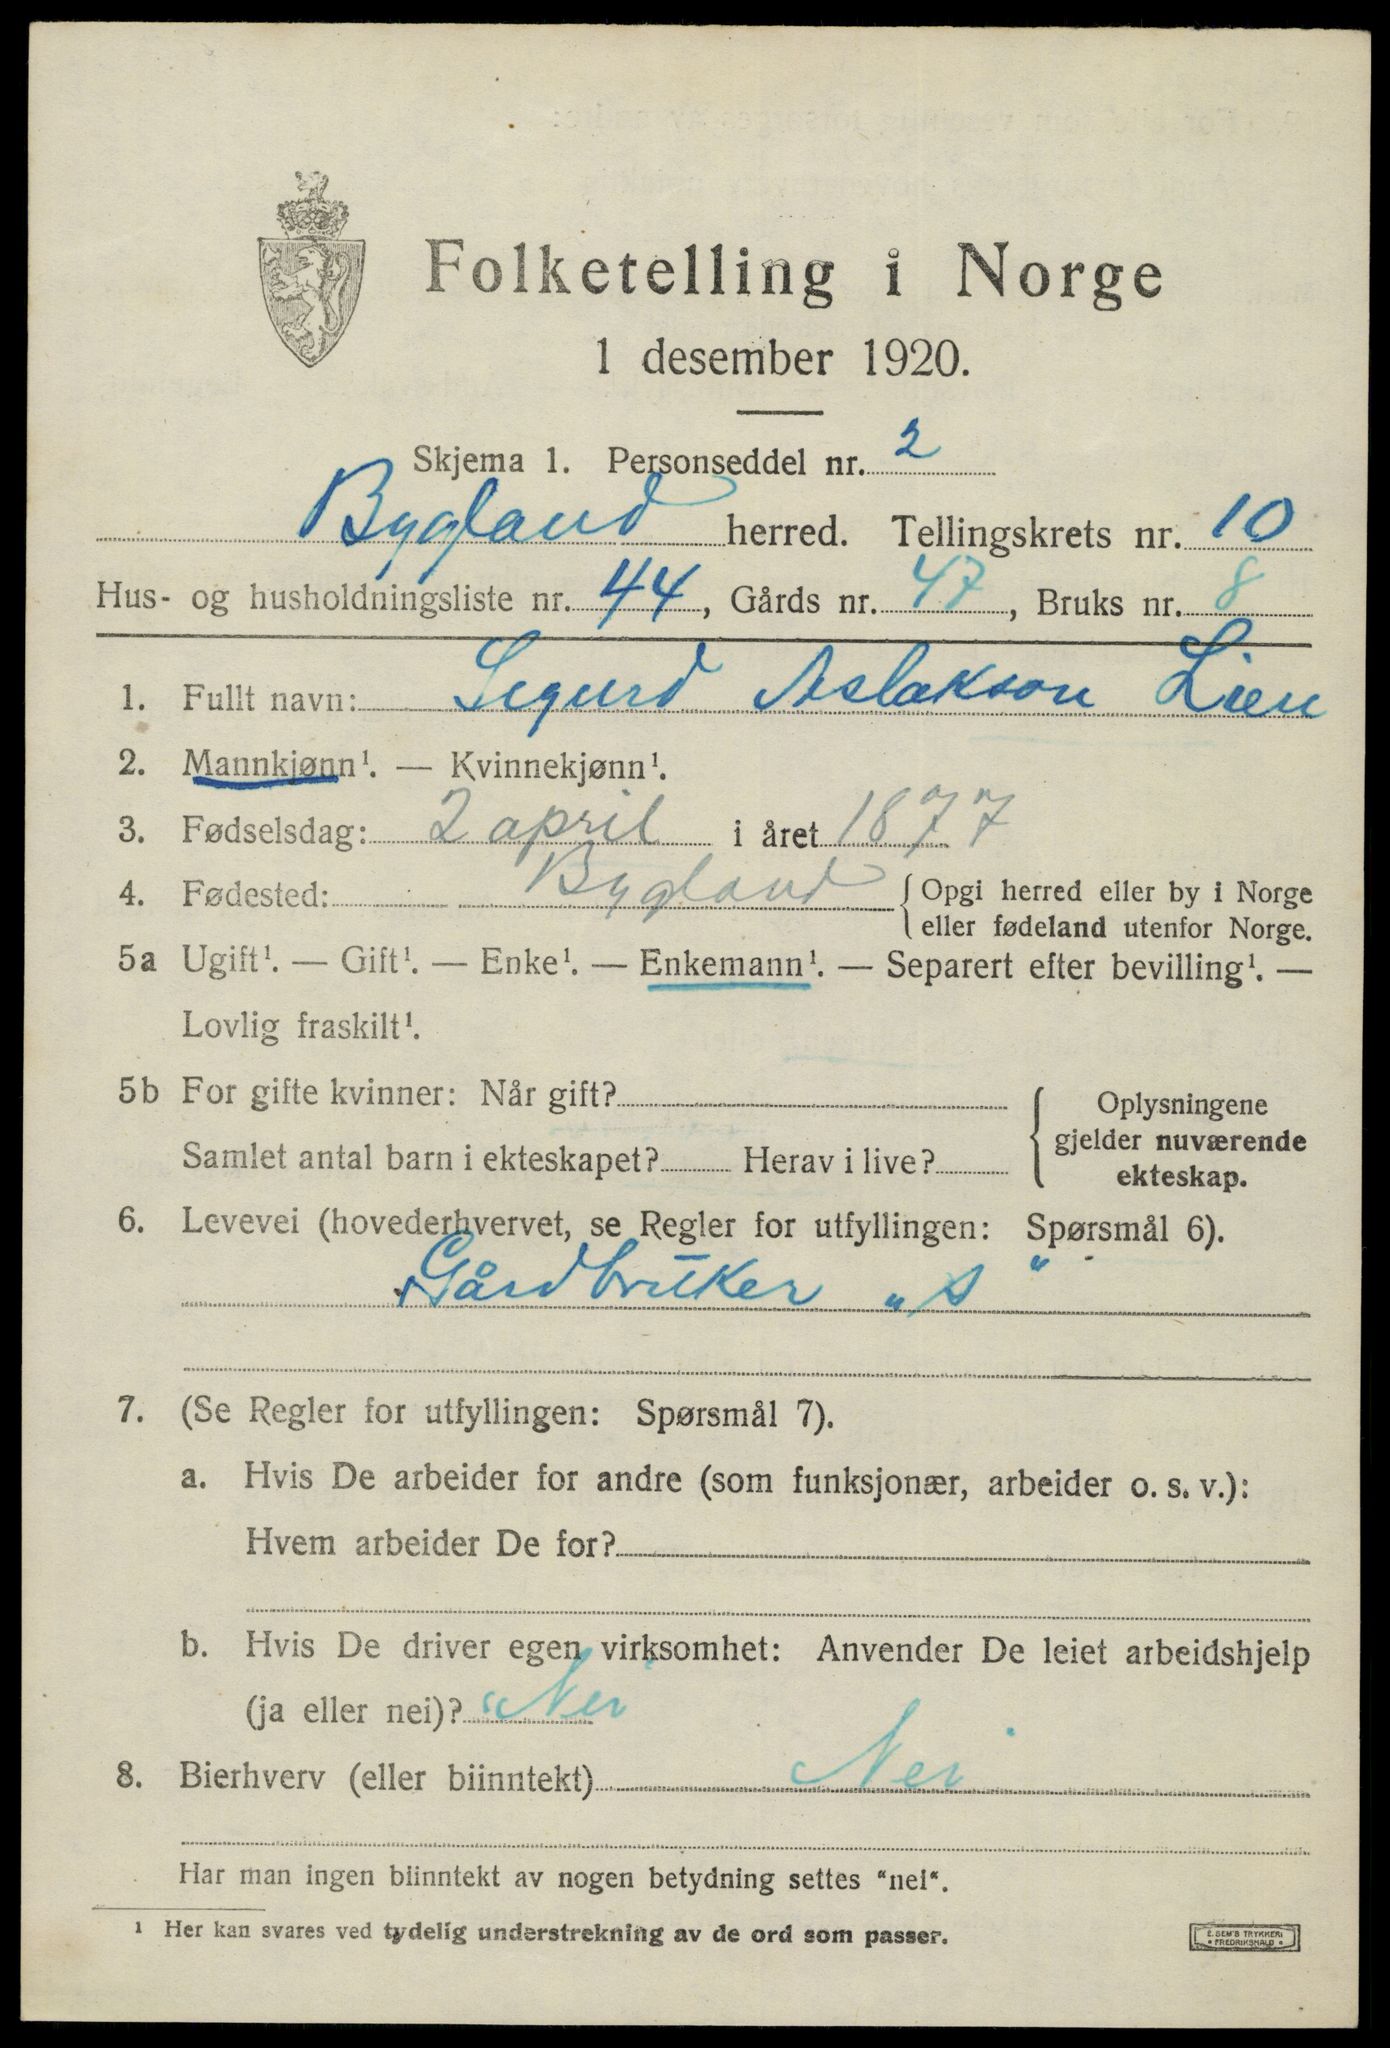 Folketelling i Norge
1 desember 1920.
Skjema 1. Personseddel nr. 2
Bygland herred. Tellingskrets nr. 10
Hus- og husholdningsliste nr. 44, Gårds nr. 47, Bruks nr. 8
1. Fullt navn: Sigurd Aslakson Lien
2. Mannkjønn¹. — Kvinnekjønn¹.
3. Fødselsdag: 2 april i året 1877
4. Fødested: Bygland { Opgi herred eller by i Norge
eller fødeland utenfor Norge.
5a Ugift¹. — Gift¹. — Enke¹. — Enkemann¹. — Separert efter bevilling¹. —
Lovlig fraskilt¹.
5b For gifte kvinner: Når gift?
Samlet antal barn i ekteskapet? Herav i live?
{ Oplysningene
gjelder nuværende
ekteskap.
6. Levevei (hovederhvervet, se Regler for utfyllingen: Spørsmål 6).
Gårdbruker „s“
7. (Se Regler for utfyllingen: Spørsmål 7).
a. Hvis De arbeider for andre (som funksjonær, arbeider o. s. v.):
Hvem arbeider De for?
b. Hvis De driver egen virksomhet: Anvender De leiet arbeidshjelp
(ja eller nei)? Nei
8. Bierhverv (eller biinntekt) Nei
Har man ingen biinntekt av nogen betydning settes "nei".
¹ Her kan svares ved tydelig understrekning av de ord som passer.
E. SEM'S TRYKKERI
FREDRIKSHALD